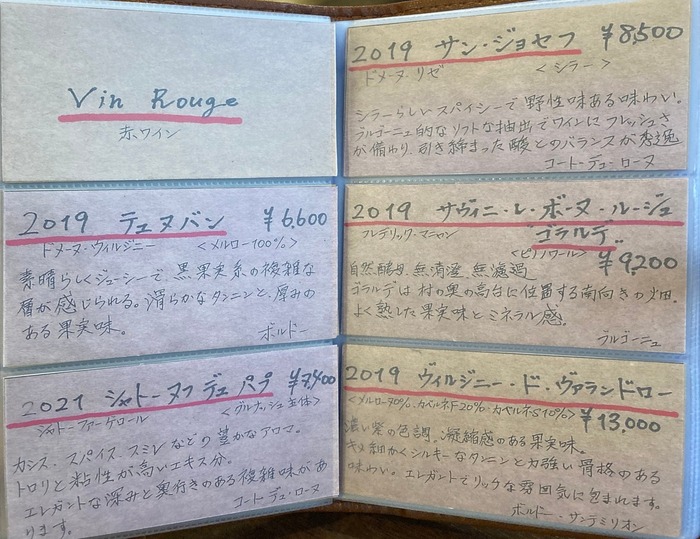 Vin Rouge
赤ワイン
2019 テュヌバン ¥6,600
ドメーヌ・ヴィルジニー <メルロー100%>
素晴らしくジューシーで、黒果実系の複雑な
層が感じられる。滑らかなタンニンと、厚みの
ある果実味。
ボルドー
2021 シャトーヌフ デュ パプ ¥7,400
シャトー・ファーゲロール <グルナッシュ主体>
カシス、スパイス、スミレなどの豊かなアロマ。
トロリと粘性が高いエキス分。
エレガントな深みと奥行きのある複雑味があ
ります。
コート・デュ・ローヌ
2019 サン・ジョセフ ¥8,500
ドメーヌ・リゼ <シラー>
シラーらしいスパイシーで野性味ある味わい。
ブルゴーニュ的なソフトな抽出でワインにフレッシュさ
が備わり、引き締まった酸とのバランスが秀逸
コート・デュ・ローヌ
2019 サヴィニ・レ・ボーヌ・ルージュ
フレデリック・マニャン ゴラルデ
<ピノノワール> ¥9,200
自然酵母、無清澄、無濾過
ゴラルデは村の奥の高台に位置する南向きの畑。
よく熟した果実味とミネラル感。
ブルゴーニュ
2019 ヴィルジニー・ド・ヴァランドロー
<メルロー70%・カベルネF20%・カベルネS10%> ¥13,000
濃い紫の色調、凝縮感のある果実味。
キメ細かくシルキーなタンニンと力強い骨格のある
味わい。エレガントでリッチな雰囲気に包まれます。
ボルドー・サンテミリオン